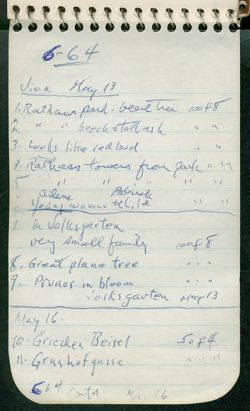 6-64
May 13
1. Rathaus park - beech tree 100 f 8
2 " " beech " "
3. Looks like redbud " "
4. Rathaus towers from park " "
5 " " " "
young woman & child
In Volksgarten
very small family 100 f 8
8. Great plane tree " " "
9. Prunus in bloom " " "
Volksgarten May 13
May 16 -
10 - Griechen Beisel 50 f 4
11 - Grashofgasse " " "
May 16